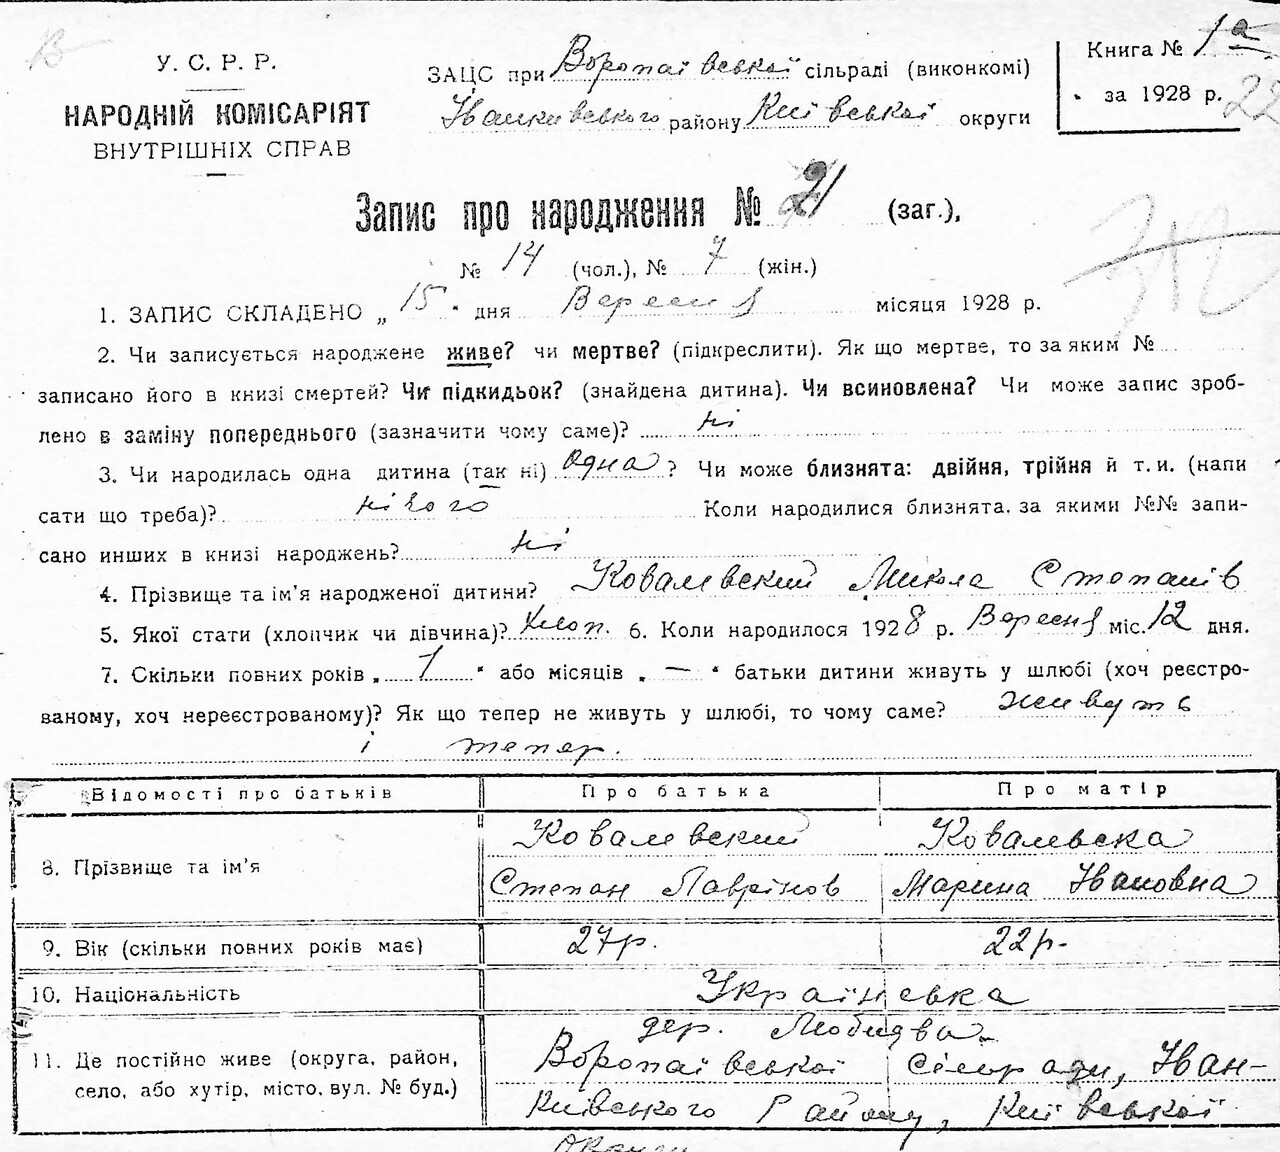 У. С. Р. Р.
НАРОДНІЙ КОМІСАРІЯТ
ВНУТРІШНІХ СПРАВ
ЗАЦС при Воропаївської сільраді (виконкомі)
Іванківського району Київської округи
Книга № 1а
за 1928 р.
22
Запис про народження № 21 (заг.),
№ 14 (чол.), № 7 (жін.)
1. ЗАПИС СКЛАДЕНО „ 15 " дня Вересня місяця 1928 р.
2. Чи записується народжене живе? чи мертве? (підкреслити). Як що мертве, то за яким №
записано його в книзі смертей? Чи підкидьок? (знайдена дитина). Чи всиновлена? Чи може запис зроб-
лено в заміну попереднього (зазначити чому саме)? ні
3. Чи народилась одна дитина (так ні) одна ? Чи може близнята: двійня, трійня й т. и. (напи
сати що треба)? нікого Коли народилися близнята, за якими №№ запи-
сано инших в книзі народжень? ні
4. Прізвище та ім'я народженої дитини? Ковалевский Микола Степанів
5. Якої стати (хлопчик чи дівчина)? хлоп. 6. Коли народилося 1928 р. Вересня міс. 12 дня.
7. Скільки повних років „ 1 " або місяців „ — " батьки дитини живуть у шлюбі (хоч реєстро-
ваному, хоч нереєстрованому)? Як що тепер не живуть у шлюбі, то чому саме? живуть
і тепер.
Відомості про батьків Про батька Про матір
8. Прізвище та ім'я Ковалевский Ковалевська
Степан Лаврінов Марина Івановна
9. Вік (скільки повних років має) 27р. 22р.
10. Національність Українська
11. Де постійно живе (округа, район, село, або хутір, місто, вул. № буд.) дер.
Воропаївської Сільради, Іван-
ківського Району, Київської
округи